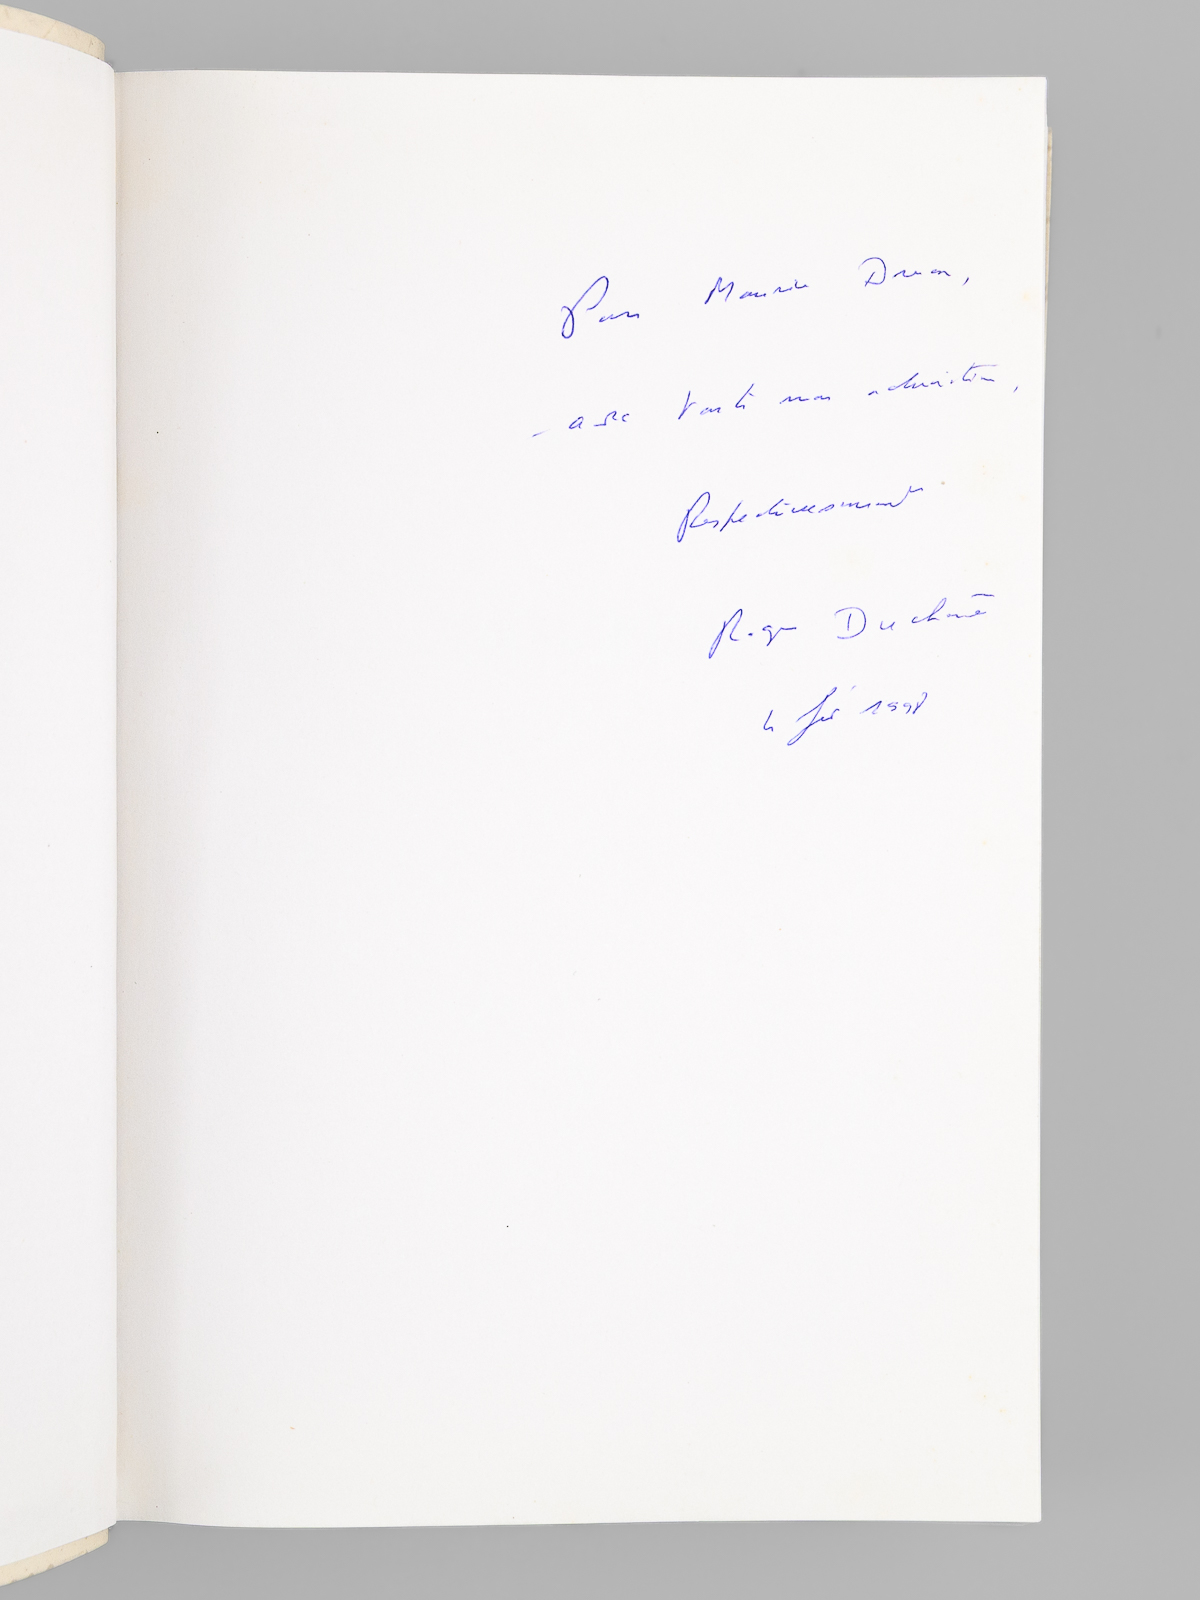 Pour Maurice Druon,
avec toute mon admiration,
Respectueusement
Roger Duchêne
4 fév 1998